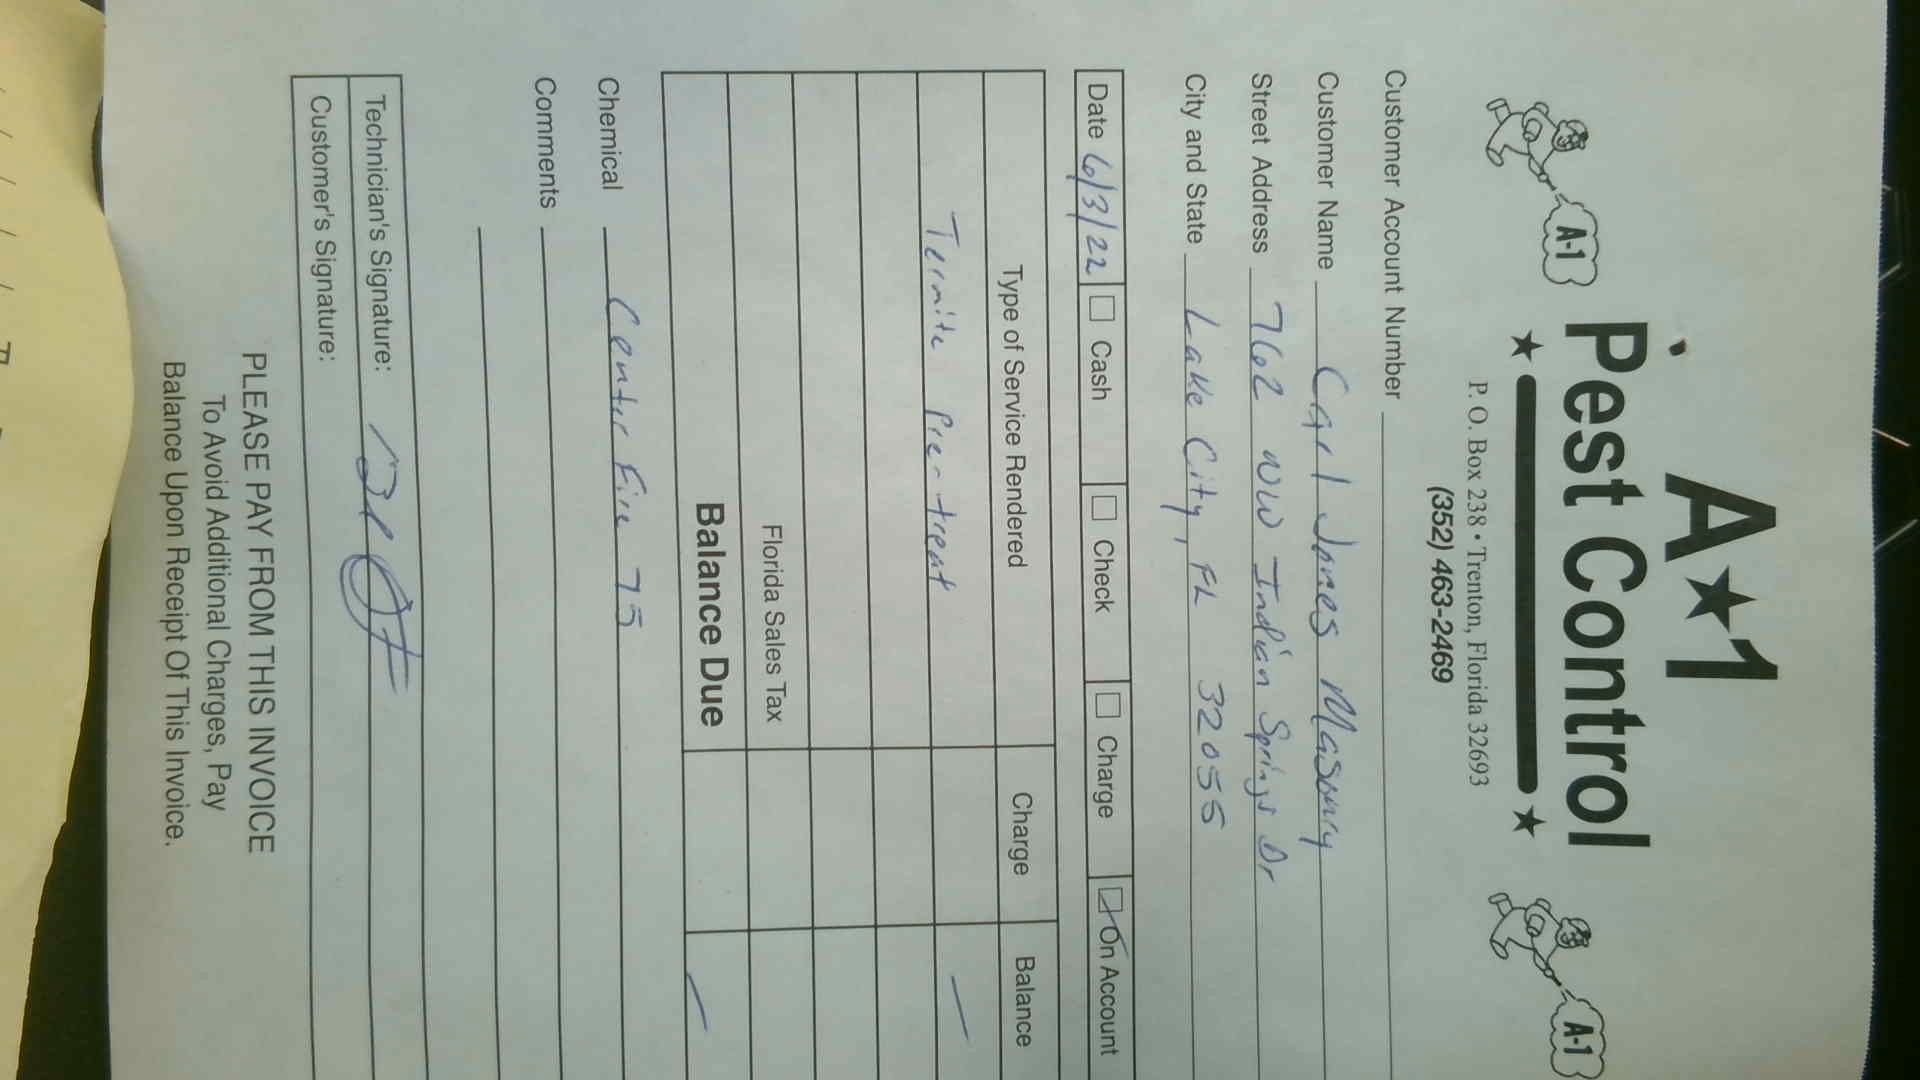 A★1
Pest Control
A-1
A-1
P. O. Box 238 • Trenton, Florida 32693
(352) 463-2469
Customer Account Number
Customer Name Carl Jones Masonry
Street Address 762 NW Indian Springs Dr
City and State Lake City, FL 32055
Date 6/3/22 Cash Check Charge On Account
Type of Service Rendered Charge Balance
Termite Pre-treat —
Florida Sales Tax
Balance Due —
Chemical Center Fire 75
Comments
Technician's Signature:
Customer's Signature:
PLEASE PAY FROM THIS INVOICE
To Avoid Additional Charges, Pay
Balance Upon Receipt Of This Invoice.